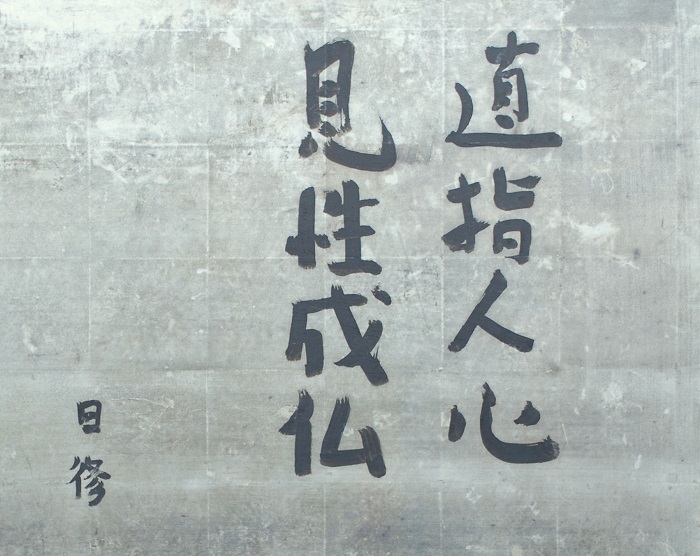 直指人心
見性成仏
日修